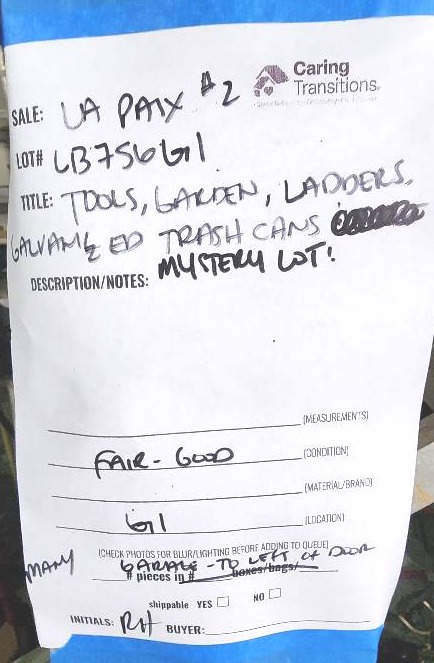 Caring
Transitions.
SALE: LA PAIX #2
LOT# LB756G1
TITLE: TOOLS, GARDEN, LADDERS,
GALVANIZED TRASH CANS
DESCRIPTION/NOTES: MYSTERY LOT!
(MEASUREMENTS)
FAIR - GOOD (CONDITION)
(MATERIAL/BRAND)
G1 (LOCATION)
(CHECK PHOTOS FOR BLUR/LIGHTING BEFORE ADDING TO QUEUE)
GARAGE - TO LEFT OF DOOR
MANY # pieces in # boxes/bags/
shippable YES NO
INITIALS: RH BUYER: